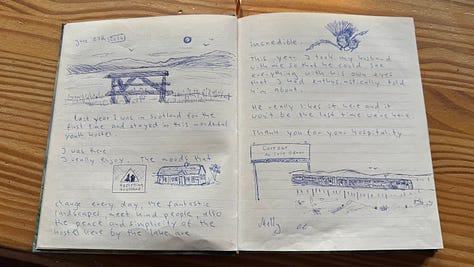 June 27th
Last year I was in Scotland for the
first time and stayed in this wonderful
youth hostel.
I was here
I really enjoy. The moods that
change every day, the fantastic
landscapes, meet kind people, also
the peace and simplicity of the
hostel here by the lake are
incredible.
This year I took my husband
with me so that he can see
everything with his own eyes
that I had enthusiastically told
him about.
He really likes it here and it
won't be the last time we are here.
Thank you for your hospitality
Corrour